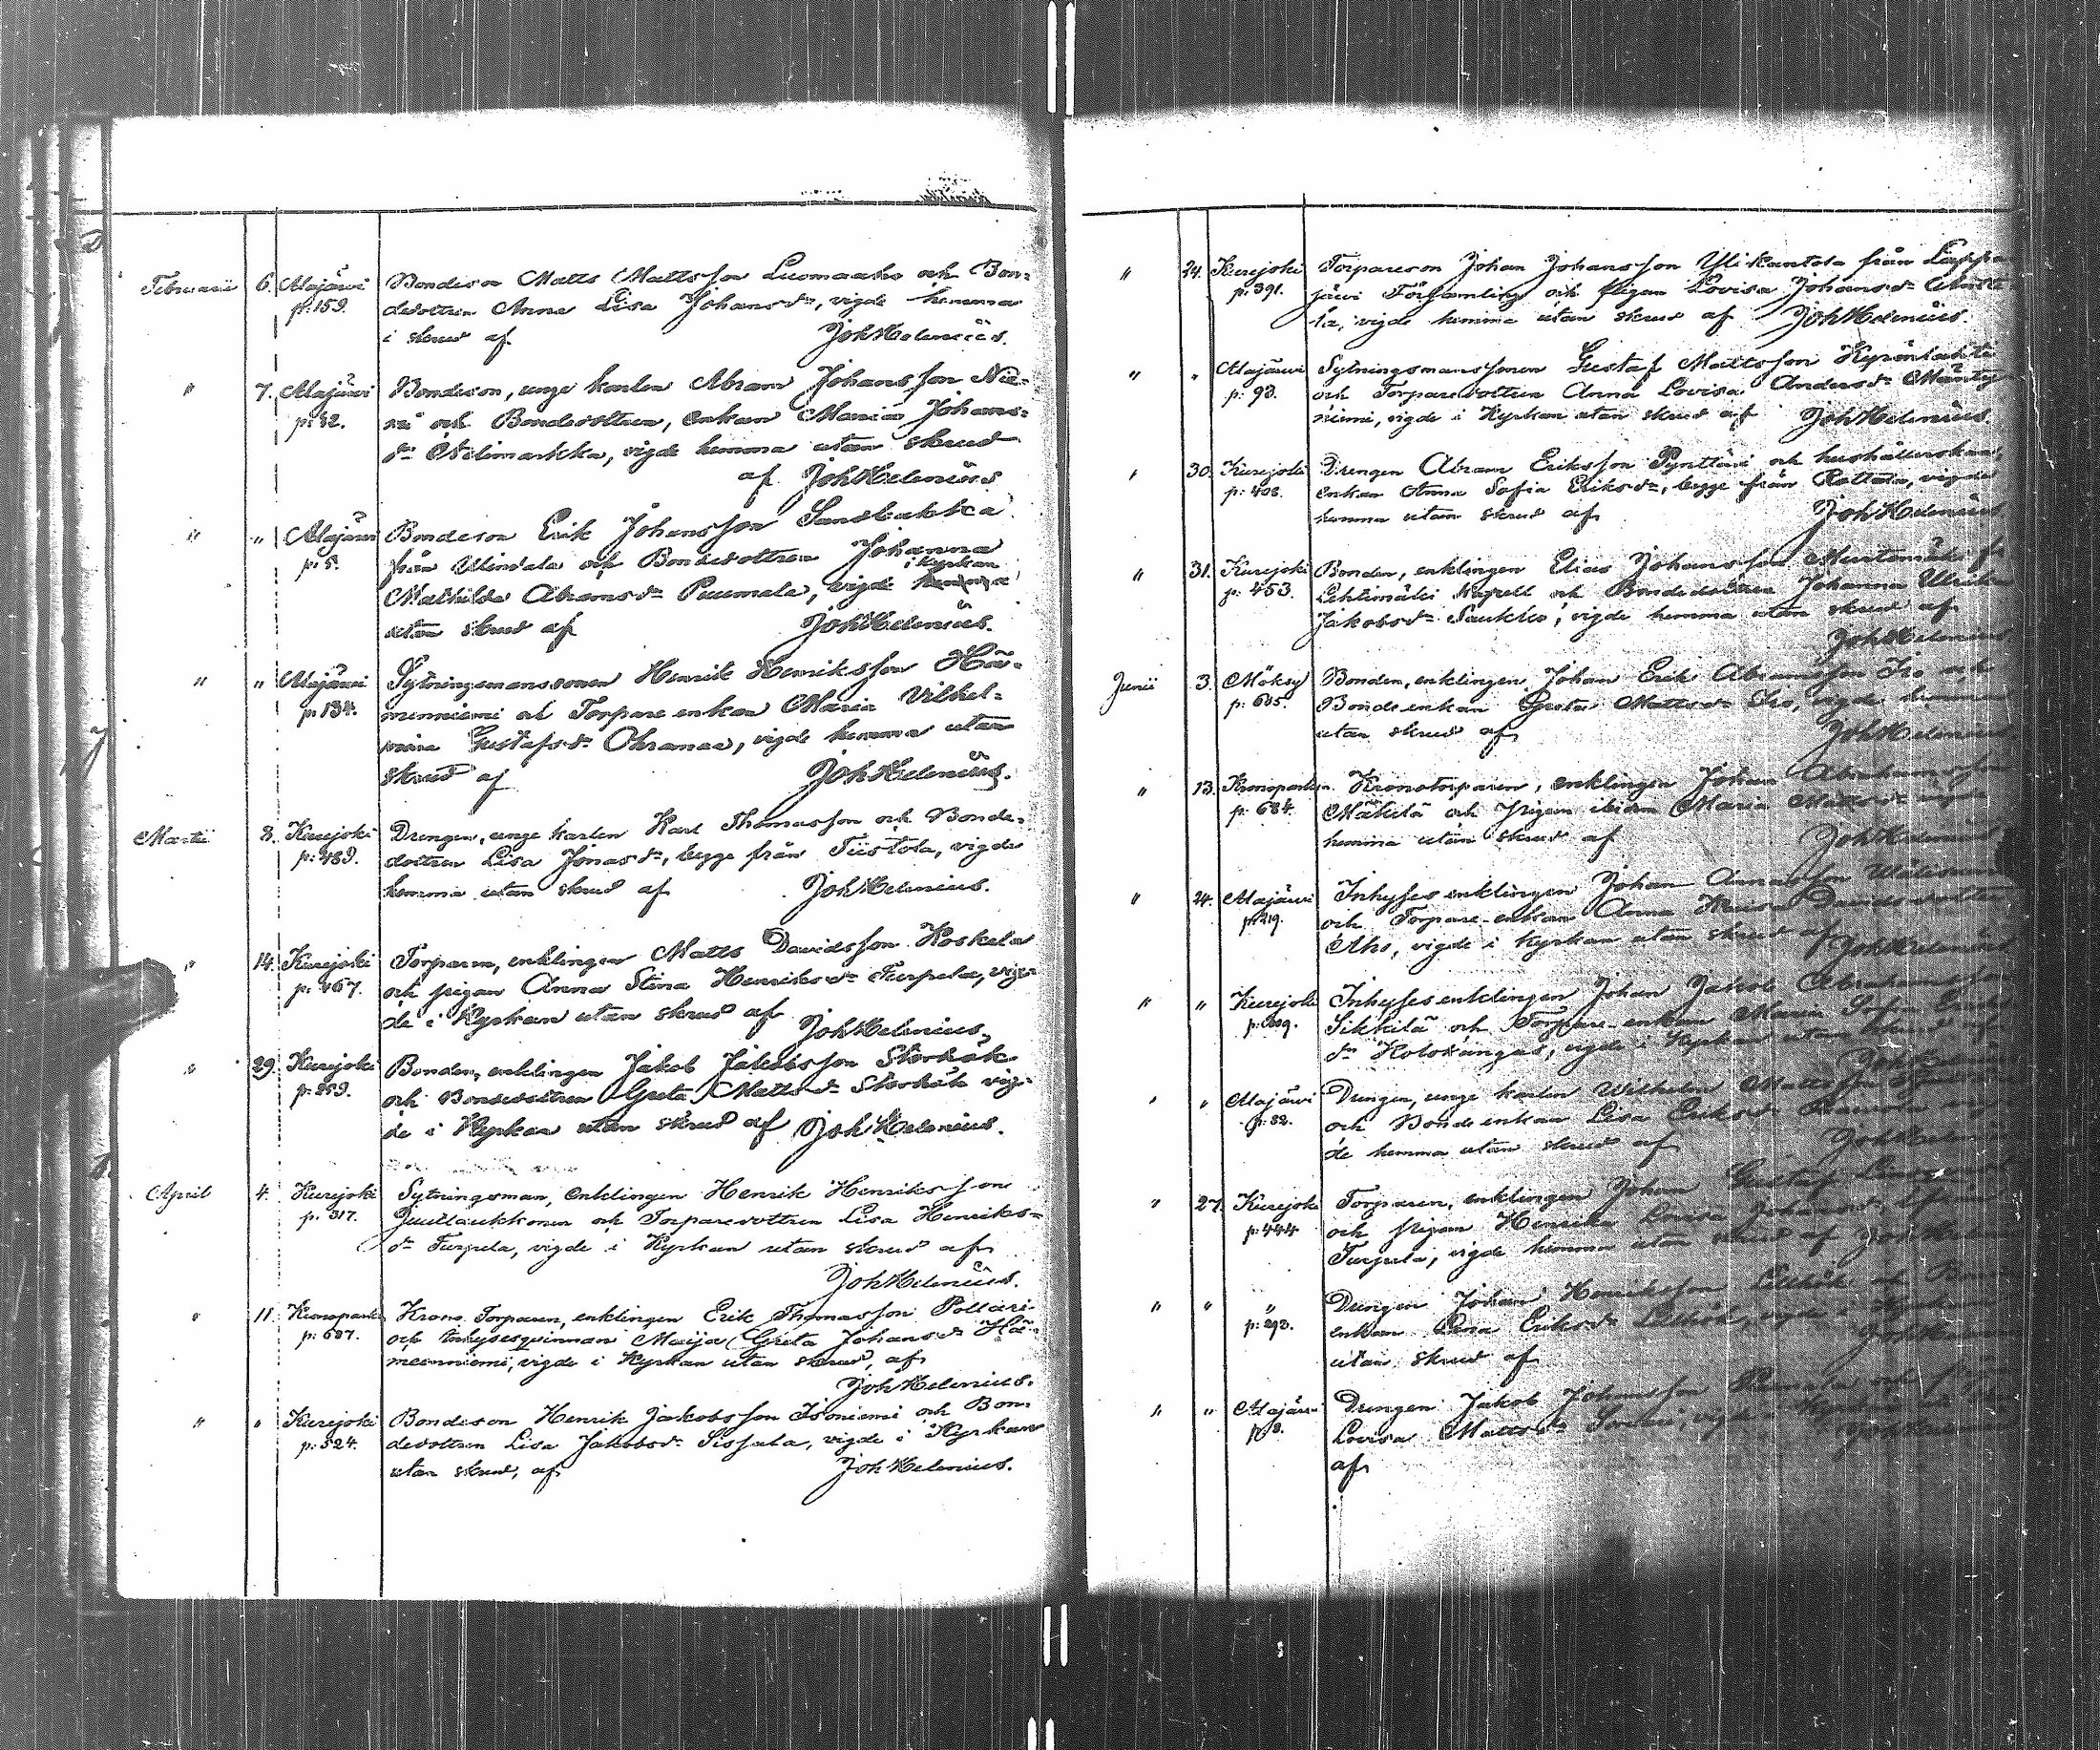 Februarii 6. Alajärvi Bondeson Matts Mattsson Luomaaho och Bon-
p: 159. dedottren Anna Lisa Johansdr, vigde hemma
i skrud af Joh Helenius.
" 7. Alajärvi Bondeson, unge karlen Abram Johansson Nie-
p: 32. ni och Bondedottren, enkan Maria Johans-
dr Nelimarkka, vigde hemma utan skrud
af Joh Helenius
" " Alajärvi Bondeson Erik Johansson Sandbakka
p: 5. från och Bondedottren Johanna
i Kyrkan
Mathilda Abramsdr Puumala, vigde hemma
utan skrud af Joh Helenius.
" " Alajärvi Sytningsmanssonen Henrik Henriksson Hä-
p. 134. menniemi och Torpare enkan Maria Vilhel-
mina Gustafsdr Ohranaa, vigde hemma utan
skrud af Joh Helenius.
Martii 8. Kurejoki Drengen, unge karlen Karl Thomasson och Bonde-
p: 489. dottren Lisa Jonasdr, begge från Tiistola, vigde
hemma utan skrud af Joh Helenius.
" 14. Kurejoki Torparen, enklingen Matts Davidsson Koskela
p: 467. och pigan Anna Stina Henriksdr Turpela, vig-
de i Kyrkan utan skrud af
Joh Helenius,
" 29. Kurejoki Bonden, enklingen Jakob Jakobsson Storbäk
p: 259. och Bondedottren Greta Mattsdr Storbäk vig-
de i Kyrkan utan skrud af Joh Helenius.
April 4. Kurejoki Sytningsman, Enklingen Henrik Henriksson
p. 317. Juutilaukkonen och Torparedottren Lisa Henriks-
dr Turpela, vigde i Kyrkan utan skrud af
Joh Helenius.
" 11. Kronoparken Krono Torparen, enklingen Erik Thomasson Pollari
p: 687. och Inhysesqvinnan Maija Greta Johansdr Hä-
meenniemi, vigde i Kyrkan utan skrud, af
Joh Helenius.
" " Kurejoki Bondeson Henrik Jakobsson Isoniemi och Bon-
p: 524. dedottren Lisa Jakobsdr Sissala, vigde i Kyrkan
utan skrud, af Joh Helenius.
" 24. Kurejoki Torpareson Johan Johansson Ylikantola från Lappa
p: 391. järvi Församling och Pigan Lovisa Johansdr
la, vigde hemma utan skrud af Joh Helenius.
" " Alajärvi Sytningsmanssonen Gustaf Mattsson Kyrönlahti
p: 93. och Torparedottren Anna Lovisa Andersdr Mänty
niemi, vigde i Kyrkan utan skrud af Joh Helenius.
" 30. Kurejoki Drengen Abram Eriksson och hushållerskan,
p: 408. enkan Anna Sofia Eriksdr, begge från Rottala, vigde
hemma utan skrud af Joh Helenius
" 31. Kurejoki Bonden, enklingen Elias Johansson
p: 453. Lehtimäki kapell och Bondedottren Johanna Ulrika
Jakobsdr Saukko, vigde hemma utan skrud af
Joh Helenius
Junii 3. Möksy Bonden, enklingen Johan Erik Abramsson Iso och
p: 605. Bonde enkan Greta Mattsdr Iso, vigde hemma
utan skrud af Joh Helenius
" 13. Kronoparken Kronotorparen, enklingen Johan Abrahamsson
p: 684. Mäkelä och Pigan ibidem Maria Mattsdr vigde
hemma utan skrud af Joh Helenius
" 24. Alajärvi Inhyses enklingen Johan
p: 219. och Torpare-enkan Anna Davidsdotter
Aho, vigde i Kyrkan utan skrud af Joh Helenius
" " Kurejoki Inhyses enklingen Johan Jakob Abrahamsson
Sikkilä och Torpare-enkan Maria Sofia
dr Holokangas, vigde i Kyrkan utan skrud af
Joh Helenius
" " Alajärvi Drengen, unge karlen Wilhelm Mattsson
p: 32. och Bonde enkan Lisa Eriksdr
de hemma utan skrud af Joh Helenius
" 27. Kurejoki Torparen, enklingen Johan Gustaf
p: 444 och pigan Henrika Lovisa Johansdr
Turpela, vigde hemma utan skrud af Joh Helenius
" " " Drengen Johan Henriksson Lillbäk och
p: 293. enkan Lena Eriksdr Lillbäk, vigde i Kyrkan
utan skrud af Joh Helenius
" " Alajärvi Drengen Jakob Johansson Pumala och
Lovisa Mattsdr vigde i Kyrkan
af